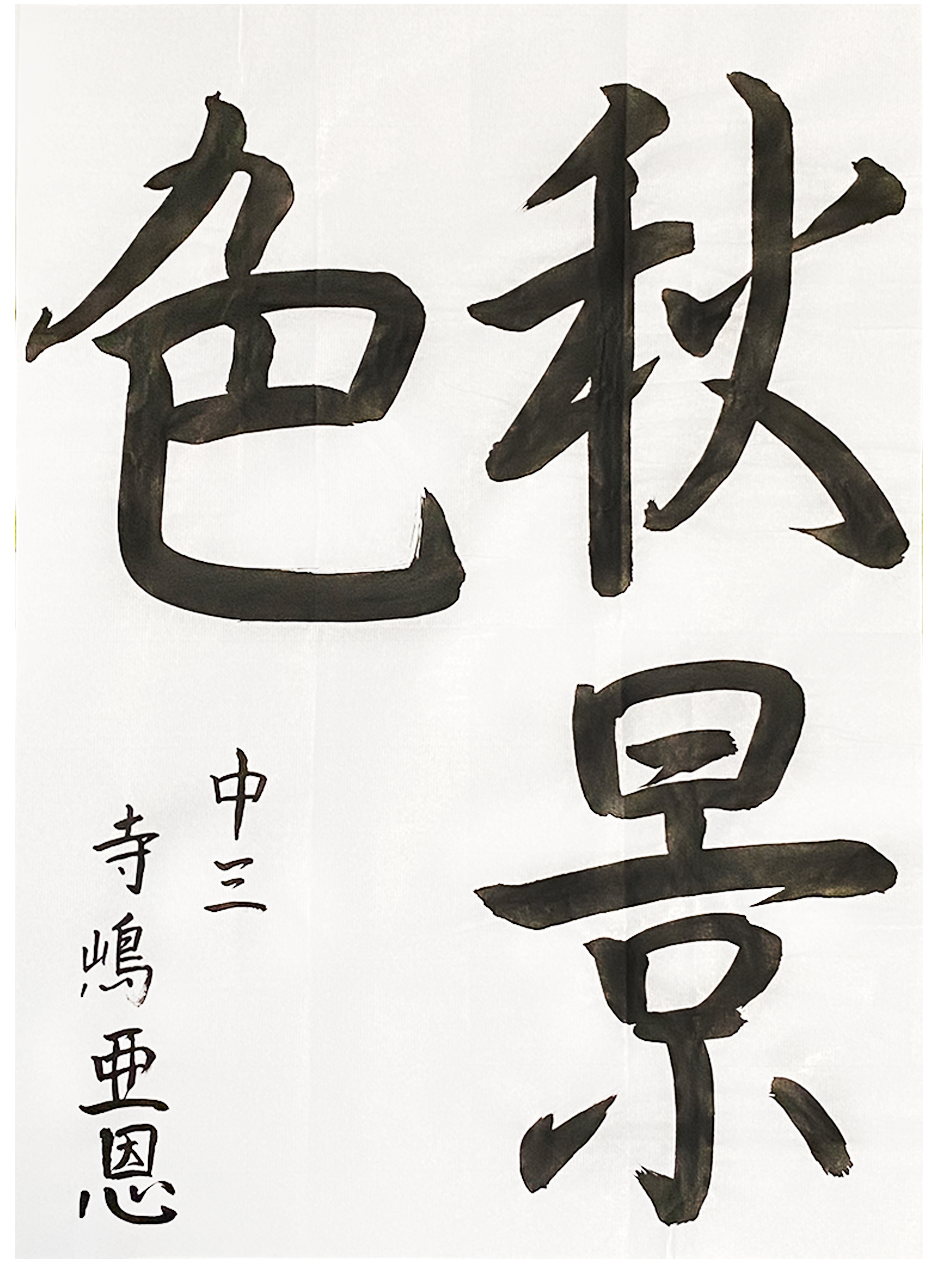 秋景
色
中三
寺嶋亜恩